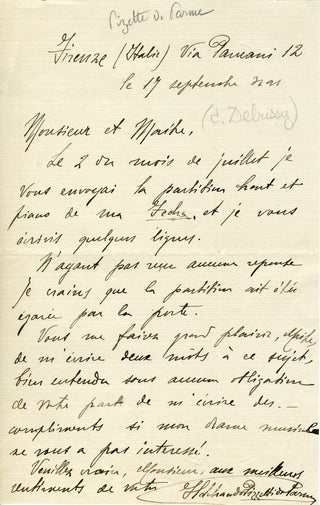 Pizetti de Parme
Firenze (Italie) Via Pancani 12
le 17 septembre
(C. Debussy)
Monsieur et Maître,
Le 2 du mois de juillet je
vous envoyai la partition chant et
piano de ma Fedra, et je vous
écrivis quelques lignes.
N'ayant pas reçu aucune reponse
je crains que la partition ait étée
égarée par la poste.
Vous me faires grand plaisir,
de m'écrire deux mots à ce sujet,
bien entendu sans aucune obligation
de votre part de m'écrire des
compliments si mon drame musicale
ne vous a pas interessé.
Veuillez croire, Monsieur, aux meilleurs
sentiments de votre Ildebrando Pizzetti da Parma